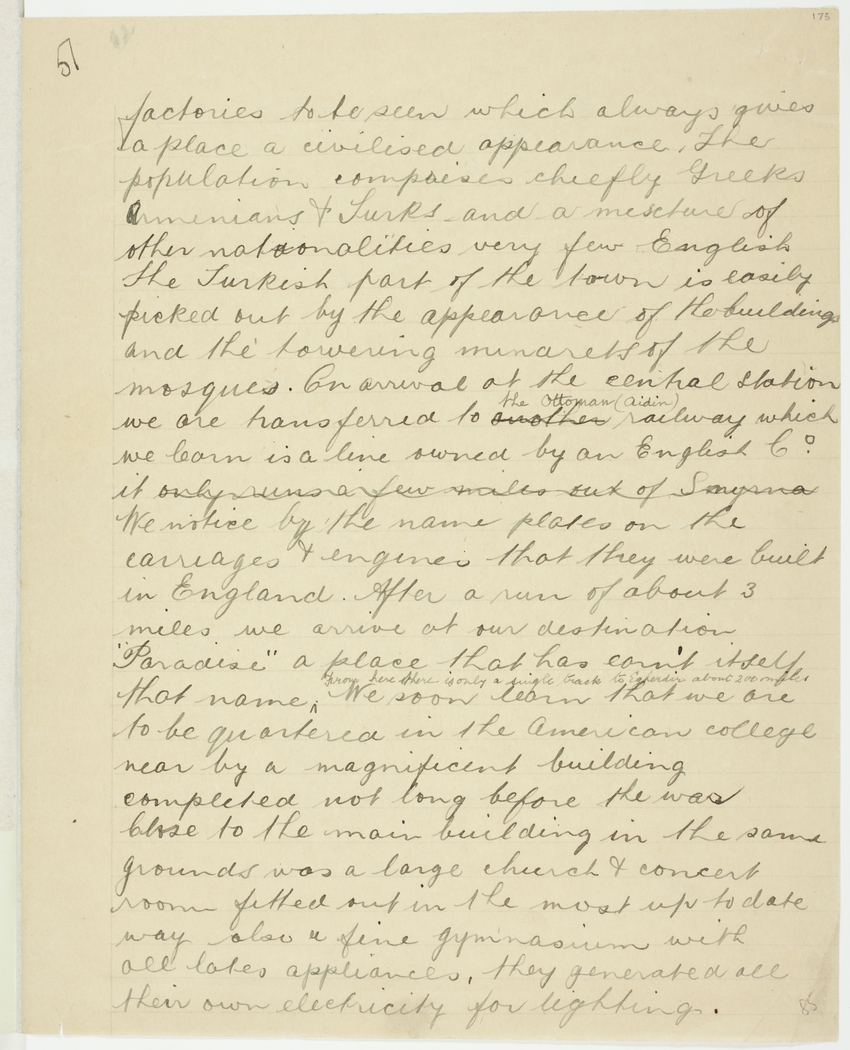 175
51
factories to be seen which always gives
a place a civilised appearance. The
population comprises cheefly Greeks
Armenians & Turks and a mixture of
other nationalities very few English
The Turkish part of the town is easily
picked out by the appearance of the buildings
and the towering minarets of the
mosques. On arrival at the central station
the Ottoman (Aidin)
we are transferred to another railway which
we learn is a line owned by an English Co.
it only runs a few miles out of Smyrna
We notice by the name plates on the
carriages & engines that they were built
in England. After a run of about 3
miles we arrive at our destination
"Paradise" a place that has earn't itself
from here there is only a single track to Egerdir about 200 miles
that name. We soon learn that we are
to be quartered in the American college
near by a magnificent building
completed not long before the war
Close to the main building in the same
grounds was a large church & concert
room fitted out in the most up to date
way also a fine gymnasium with
all lates appliances, they generated all
their own electricity for lighting.
85